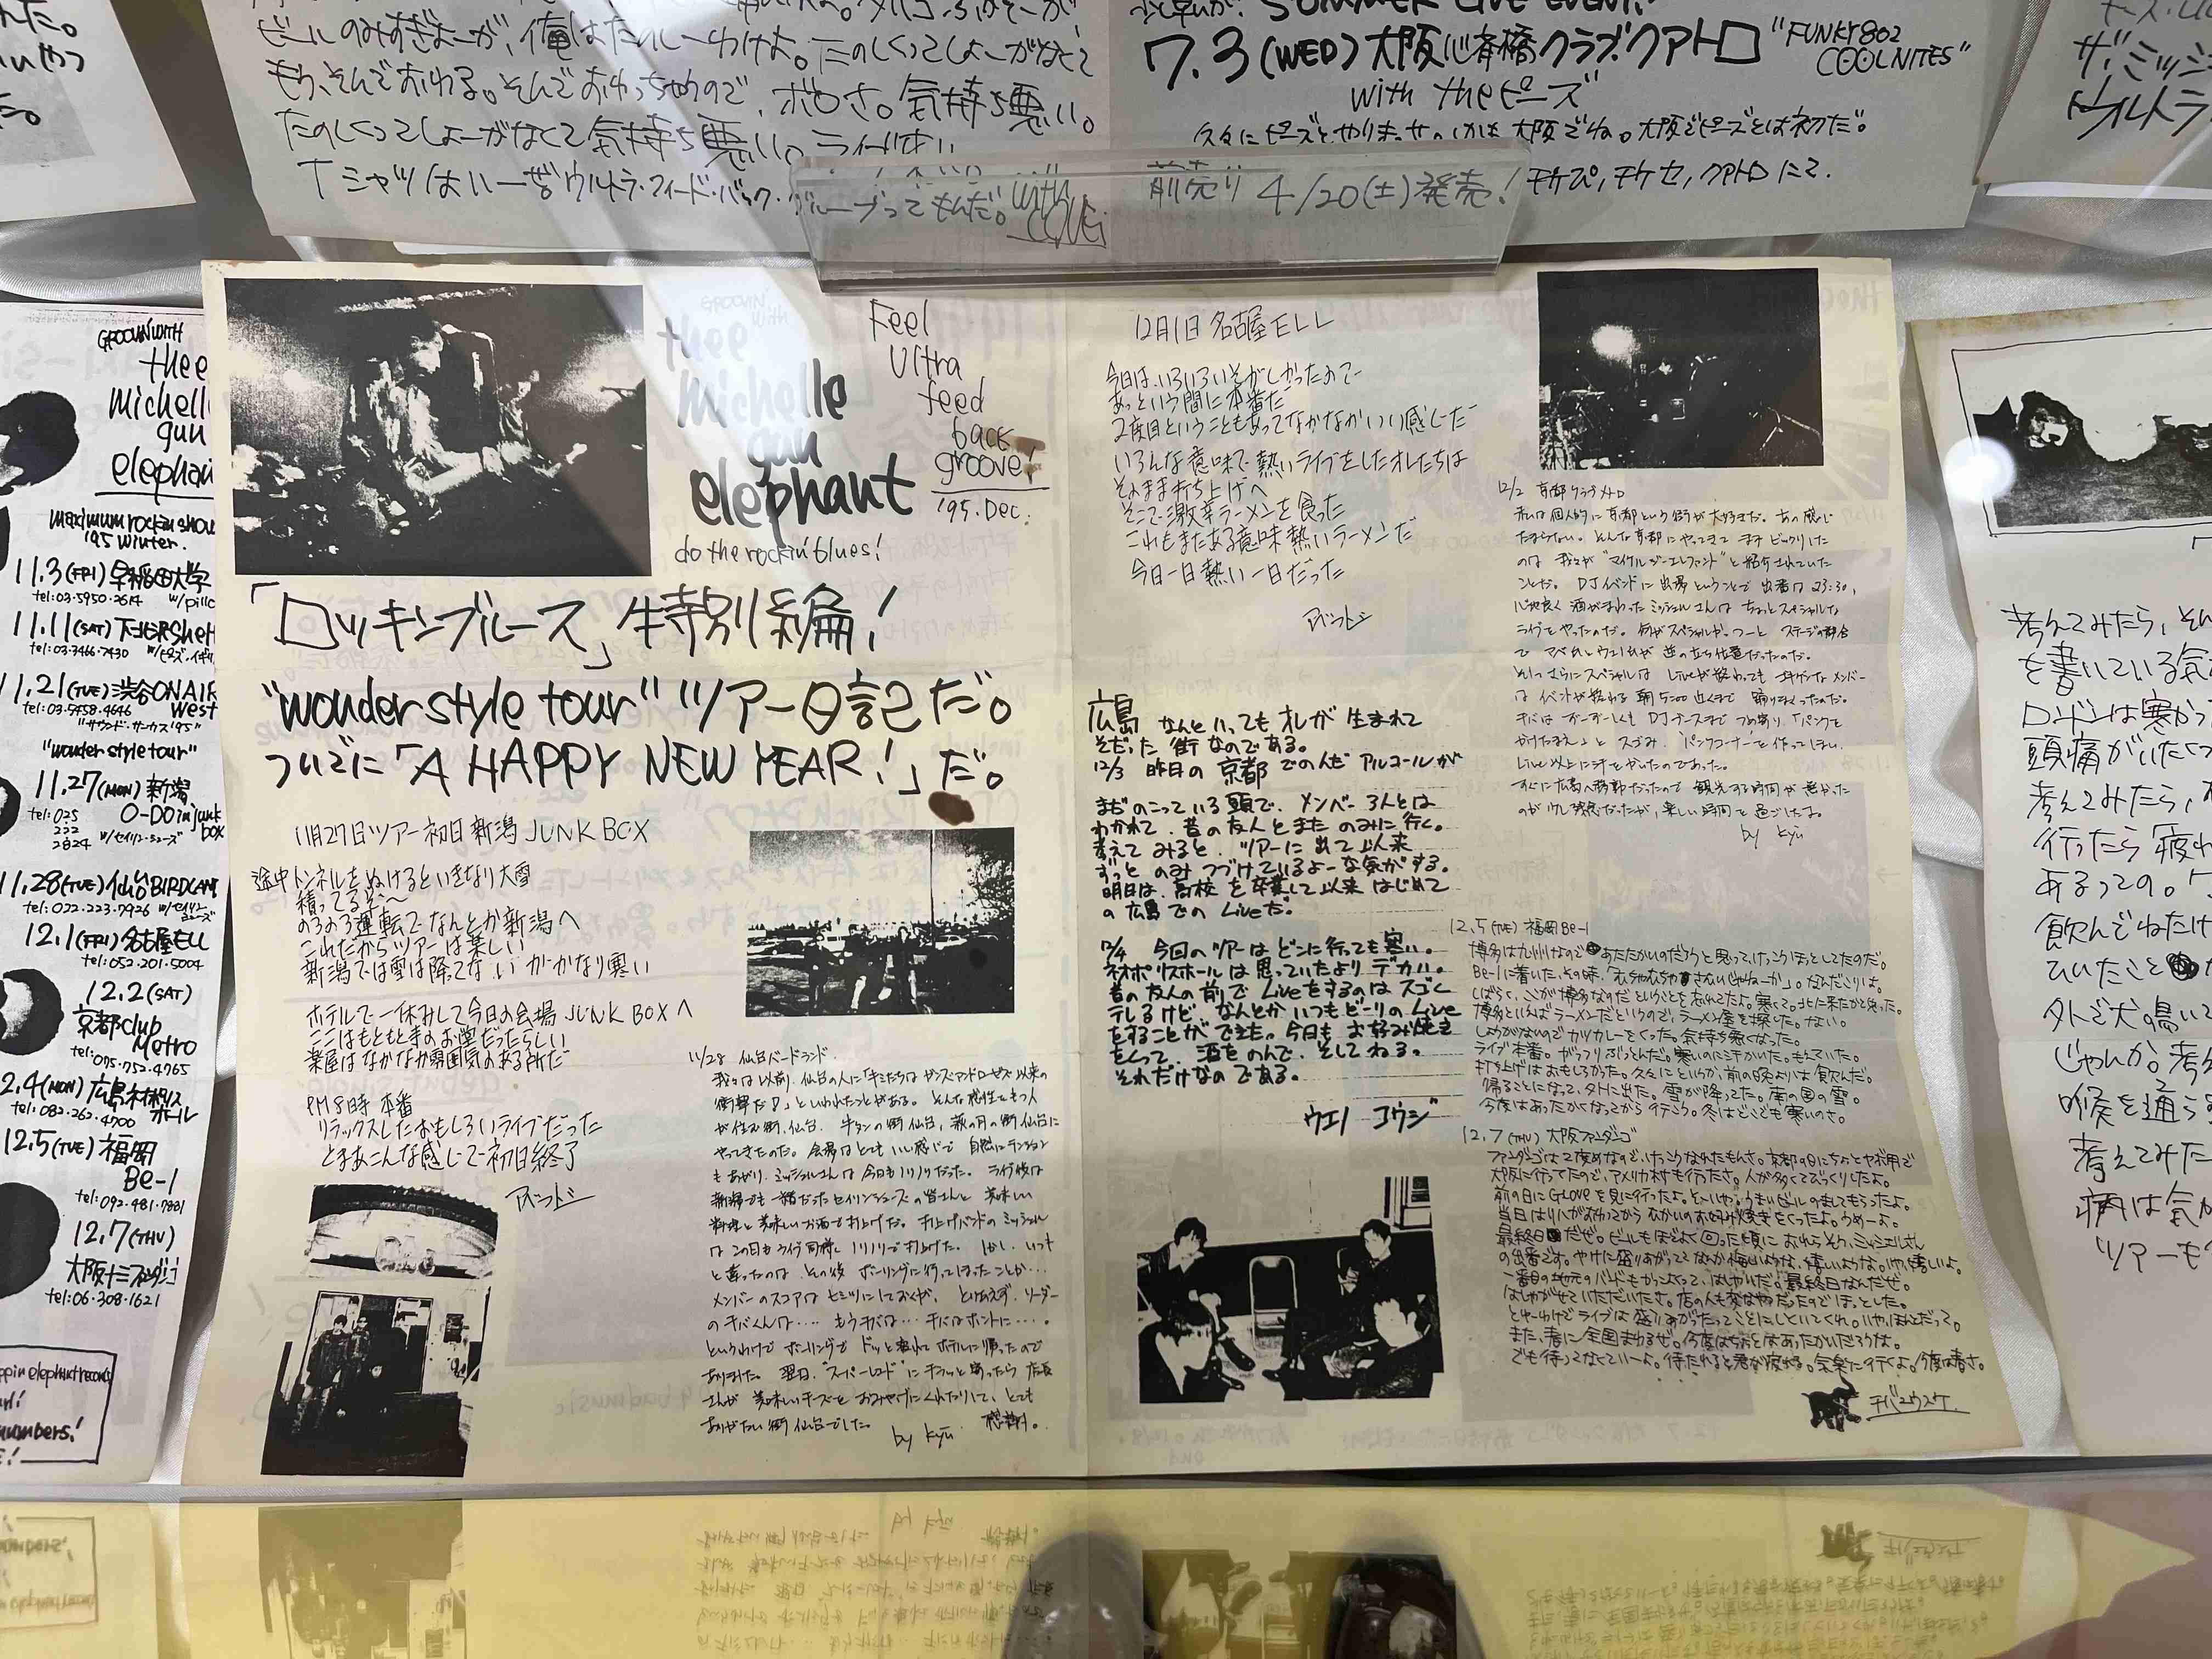 ビールのみすぎよーが、俺はたのしーわけよ。たのしくってしょーがなくて
もう、そんでおわる。そんでおわっちゃうので、ボロさ。気持ち悪い。
たのしくってしょーがなくて気持ち悪い。
Tシャツはい一番ウルトラ・フィード・バック・グルーブってもんだ。with LOVE;
SUMMER LIVE EVENT!
7.3(WED)大阪心斎橋クラブクアトロ "FUNKY802 COOLNITES"
with theピーズ
大阪でピーズとは初だ。
前売り 4/20(土)発売! チケぴ, チケセ, クアトロにて.
GROOVIN' WITH
thee
michelle
gun
elephant
maximum rockin show
'95 winter.
11.3(FRI)早稲田大学
tel:03-5950-2614
11.11(SAT)下北沢Shel
tel:03-3466-7430
11.21(TUE)渋谷ON AIR West
tel:03-5458-4646
"サウンド・サーカス'95"
"wonder style tour"
11.27(MON)新潟
O-DO in junk box
tel:025 222
11.28(TUE)仙台BIRDLAND
tel:022-223-7926
12.1(FRI)名古屋ELL
tel:052-201-5004
12.2(SAT)
京都club Metro
tel:075-752-4765
12.4(MON)広島ネオポリスホール
tel:082-262-4700
12.5(TUE)福岡
Be-1
tel:092-481-7881
12.7(THU)
大阪十三ファンダンゴ
tel:06-308-1621
GROOVIN' WITH
thee
michelle
gun
elephant
do the rockin' blues!
Feel
Ultra
feed
back
groove!
'95. Dec.
「ロッキンブルース」特別編!
"wonder style tour"ツアー日記だ。
ついでに「A HAPPY NEW YEAR!」だ。
11月27日ツアー初日 新潟 JUNK BOX
途中トンネルをぬけるといきなり大雪
積ってるぞ〜
のろのろ運転でなんとか新潟へ
これだからツアーは楽しい
新潟では雪は降ってないが かなり寒い
ホテルで一休みして今日の会場 JUNK BOXへ
ここはもともと寺のお堂だったらしい
楽屋はなかなか雰囲気のある所だ
PM8時 本番
リラックスしたおもしろいライブだった
とまあこんな感じで初日終了
アベフトシ
11/28 仙台バードランド
我々は以前、仙台の人に「キミたちはガンズ・アンド・ローゼズ以来の
衝撃だ!」といわれたことがある。そんな感性をもつ人
が住む街、仙台。牛タンの街仙台、萩の月の街仙台に
やってきたのだ。会場はとてもいい感じで自然にテンション
もあがり、ミッシェルさんは今日もノリノリだった。ライブ後は
新潟でも一緒だったセイリンシューズの皆さんと美味しい
料理と美味しいお酒で打上げだ。打上げバンドのミッシェル
はこの日もライブ同様にノリノリで打上げた。しかし、いつも
と違ったのは その後 ボーリングに行ってしまったことか…
メンバーのスコアはヒミツにしておくが、とりあえず、リーダー
のチバくんは…… もうチバは… チバはホントに……。
というわけで ボーリングで ドッと疲れて ホテルに帰ったので
ありました。翌日、"スーパーレコード"にチラッと寄ったら 店長
さんが 美味しいチーズを おみやげに くれたりして、とても
ありがたい街 仙台でした。
by kyu 感謝。
12月1日 名古屋ELL
今日は いろいろいそがしかったので
あっという間に本番だ
2度目ということもあってなかなかいい感じだ
いろんな意味で熱いライブをしたオレたちは
そのまま打ち上げへ
そこで激辛ラーメンを食った
これもまたある意味熱いラーメンだ
今日一日熱い一日だった
アベフトシ
12/2 京都クラブメトロ
私は個人的に京都という街が大好きだ。あの感じ
たまらない。そんな京都にやってきて まず ビックリした
のは 我々が "マイケルガーエレファント"と紹介されていた
ことだ。DJイベントに出場ということで 出番は23:30,
心地良く 酒がまわった ミッシェルさんは ちょっとスペシャルな
ライブをやったのだ。何がスペシャルかっつーと ステージの都合
で アベさんとウエノさんが 逆の立ち位置だったのだ。
そしてさらにスペシャルは Liveが終わっても
は イベントが終わる 朝5:00近くまで 踊りまくったのだ。
チバは ずーずーしくも DJブースまで つめ寄り「パンクを
かけたまえ」と スゴみ、"パンクコーナー"を作ってしまい
Live以上に汗をかいたのであった。
すぐに広島へ移動だったので 観光する時間が無かった
のが少し残念だったが、楽しい時間を過ごしたよ。
by kyu
広島 なんといっても オレが 生まれて
そだった 街 なのである。
12/3 昨日の 京都 でのんだ アルコールが
まだのこっている頭で、メンバー3人とは
わかれて、昔の友人とまた のみに行く。
考えて みると、ツアーに 出て以来
ずっと のみ つづけているよーな気がする。
明日は、高校を卒業して以来 はじめて
の 広島での Liveだ。
12/4 今回のツアーは どこに行っても寒い。
ネオポリスホールは 思っていたより デカい。
昔の友人の前で Liveをするのは スゴく
テレるけど、なんとか いつもどーりの Live
をすることができた。今日も お好み焼きを
くって、酒をのんで、そして ねる。
それだけなのである。
ウエノ コウジ
12.5(TUE) 福岡Be-1
博多は九州なので あたたかいのだろうと思ってけっこうほっとしてたのだ。
Be-1に着いた、その時、「むちゃむちゃさむいじゃねーか」。なんだこりゃ。
しばらく、ここが博多なのだということを忘れてたよ。寒くて。北に来たかと思った。
博多といえばラーメンだというので、ラーメン屋を探した。ない。
しょうがないのでカツカレーをくった。気持ち悪くなった。
ライブ本番。がっつりぶっとんだ。寒いのに汗かいた。もえていた。
打ち上げはおもしろかった。久々にというか、前の晩よりは飲んだ。
帰ることになって、外に出た。雪が降ってた。南の国の雪。
今度はあったかくなってから行こう。冬はどこでも寒いのさ。
12.7(THU) 大阪ファンダンゴ
ファンダンゴは2度めなので、けっこうなれたもんさ。京都の日にちょっとヤボ用で
大阪に行ってたので、アメリカ村も行ったさ。人が多くてびっくりしたよ。
前の日にGLOVEを見に行ったよ。そーいや、うまいビールのましてもらったよ。
当日はリハがおわってから むかいのお好み焼きをくったよ。うめーよ。
最終日だぜ。ビールもほどよく回った頃に おれらそう、ミッシェルさん
の出番です。やけに盛りあがってて なんか悔しいような、嬉しいような。いや、嬉しいよ。
一番目の地元のバンドもかっこよくって、はしゃいだ。最終日なんだぜ。
はしゃがせていただいたさ。店の人も変なヤツだったのでほっとした。
とゆーわけでライブは盛りあがったってことにしといてくれ。いや、ほんとだって。
また、春に全国まわるぜ。今度はちょっとはあったかいだろうな。
でも待ってなくていーよ。待たれると君が疲れる。気楽に行くよ。今度は春さ。
チバユウスケ
考えてみたら、そん
を書いている気
ロンドンは寒かっ
頭痛がいたくて
考えてみたら、
行ったら「疲れ
あるっての。
飲んでねたけ
ひいたこと
外で犬の鳴い
じゃんか。考
喉を通ら
考えてみた
病は気か
"ツアーも